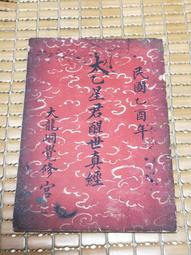 民國乙酉年
太乙星君醒世真經
大龍峒覺修宮